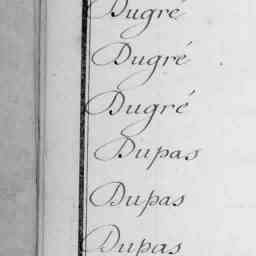 Dugré
Dugré
Dugré
Dupas
Dupas
Dupas